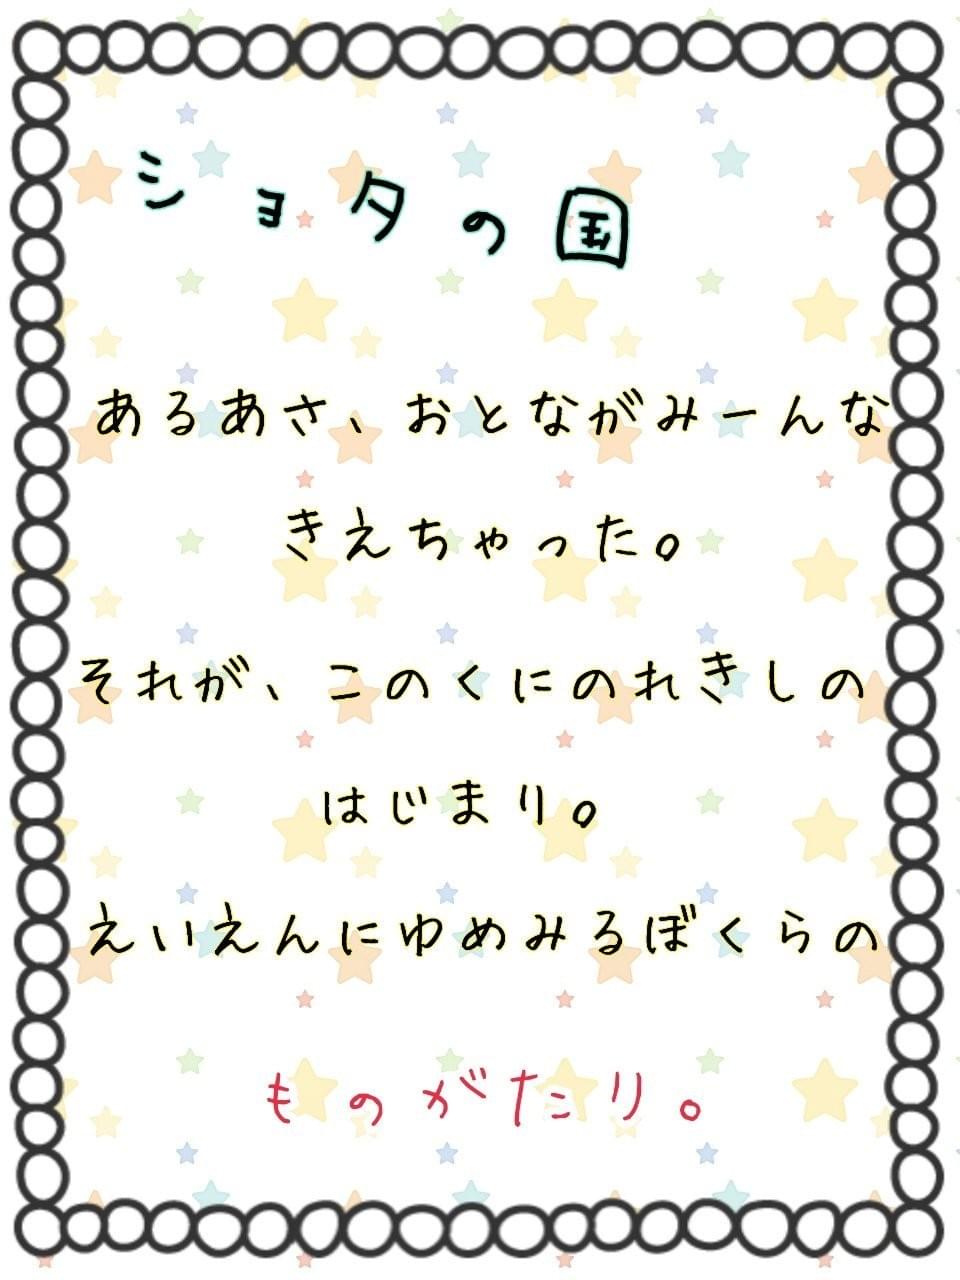 ショタの国
あるあさ、おとながみーんな
きえちゃった。
それが、このくにのれきしの
はじまり。
えいえんにゆめみるぼくらの
ものがたり。